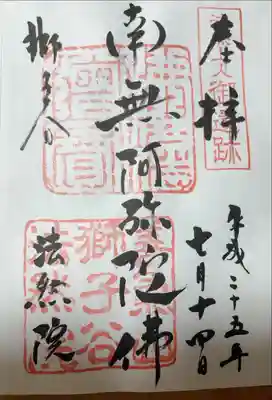 奉拝
平成二十五年
七月十四日
南無阿弥陀佛
獅子谷
法然院
御遺跡
獅子谷